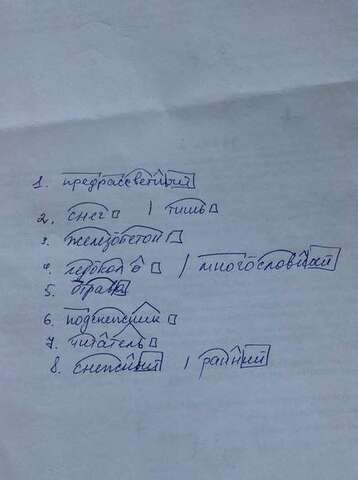 1. предрассветный
2. снег / тишь
3. железобетон
4. ледокол / многословный
5. отрава
6. подснежник
7. читатель
8. снежный / ранний